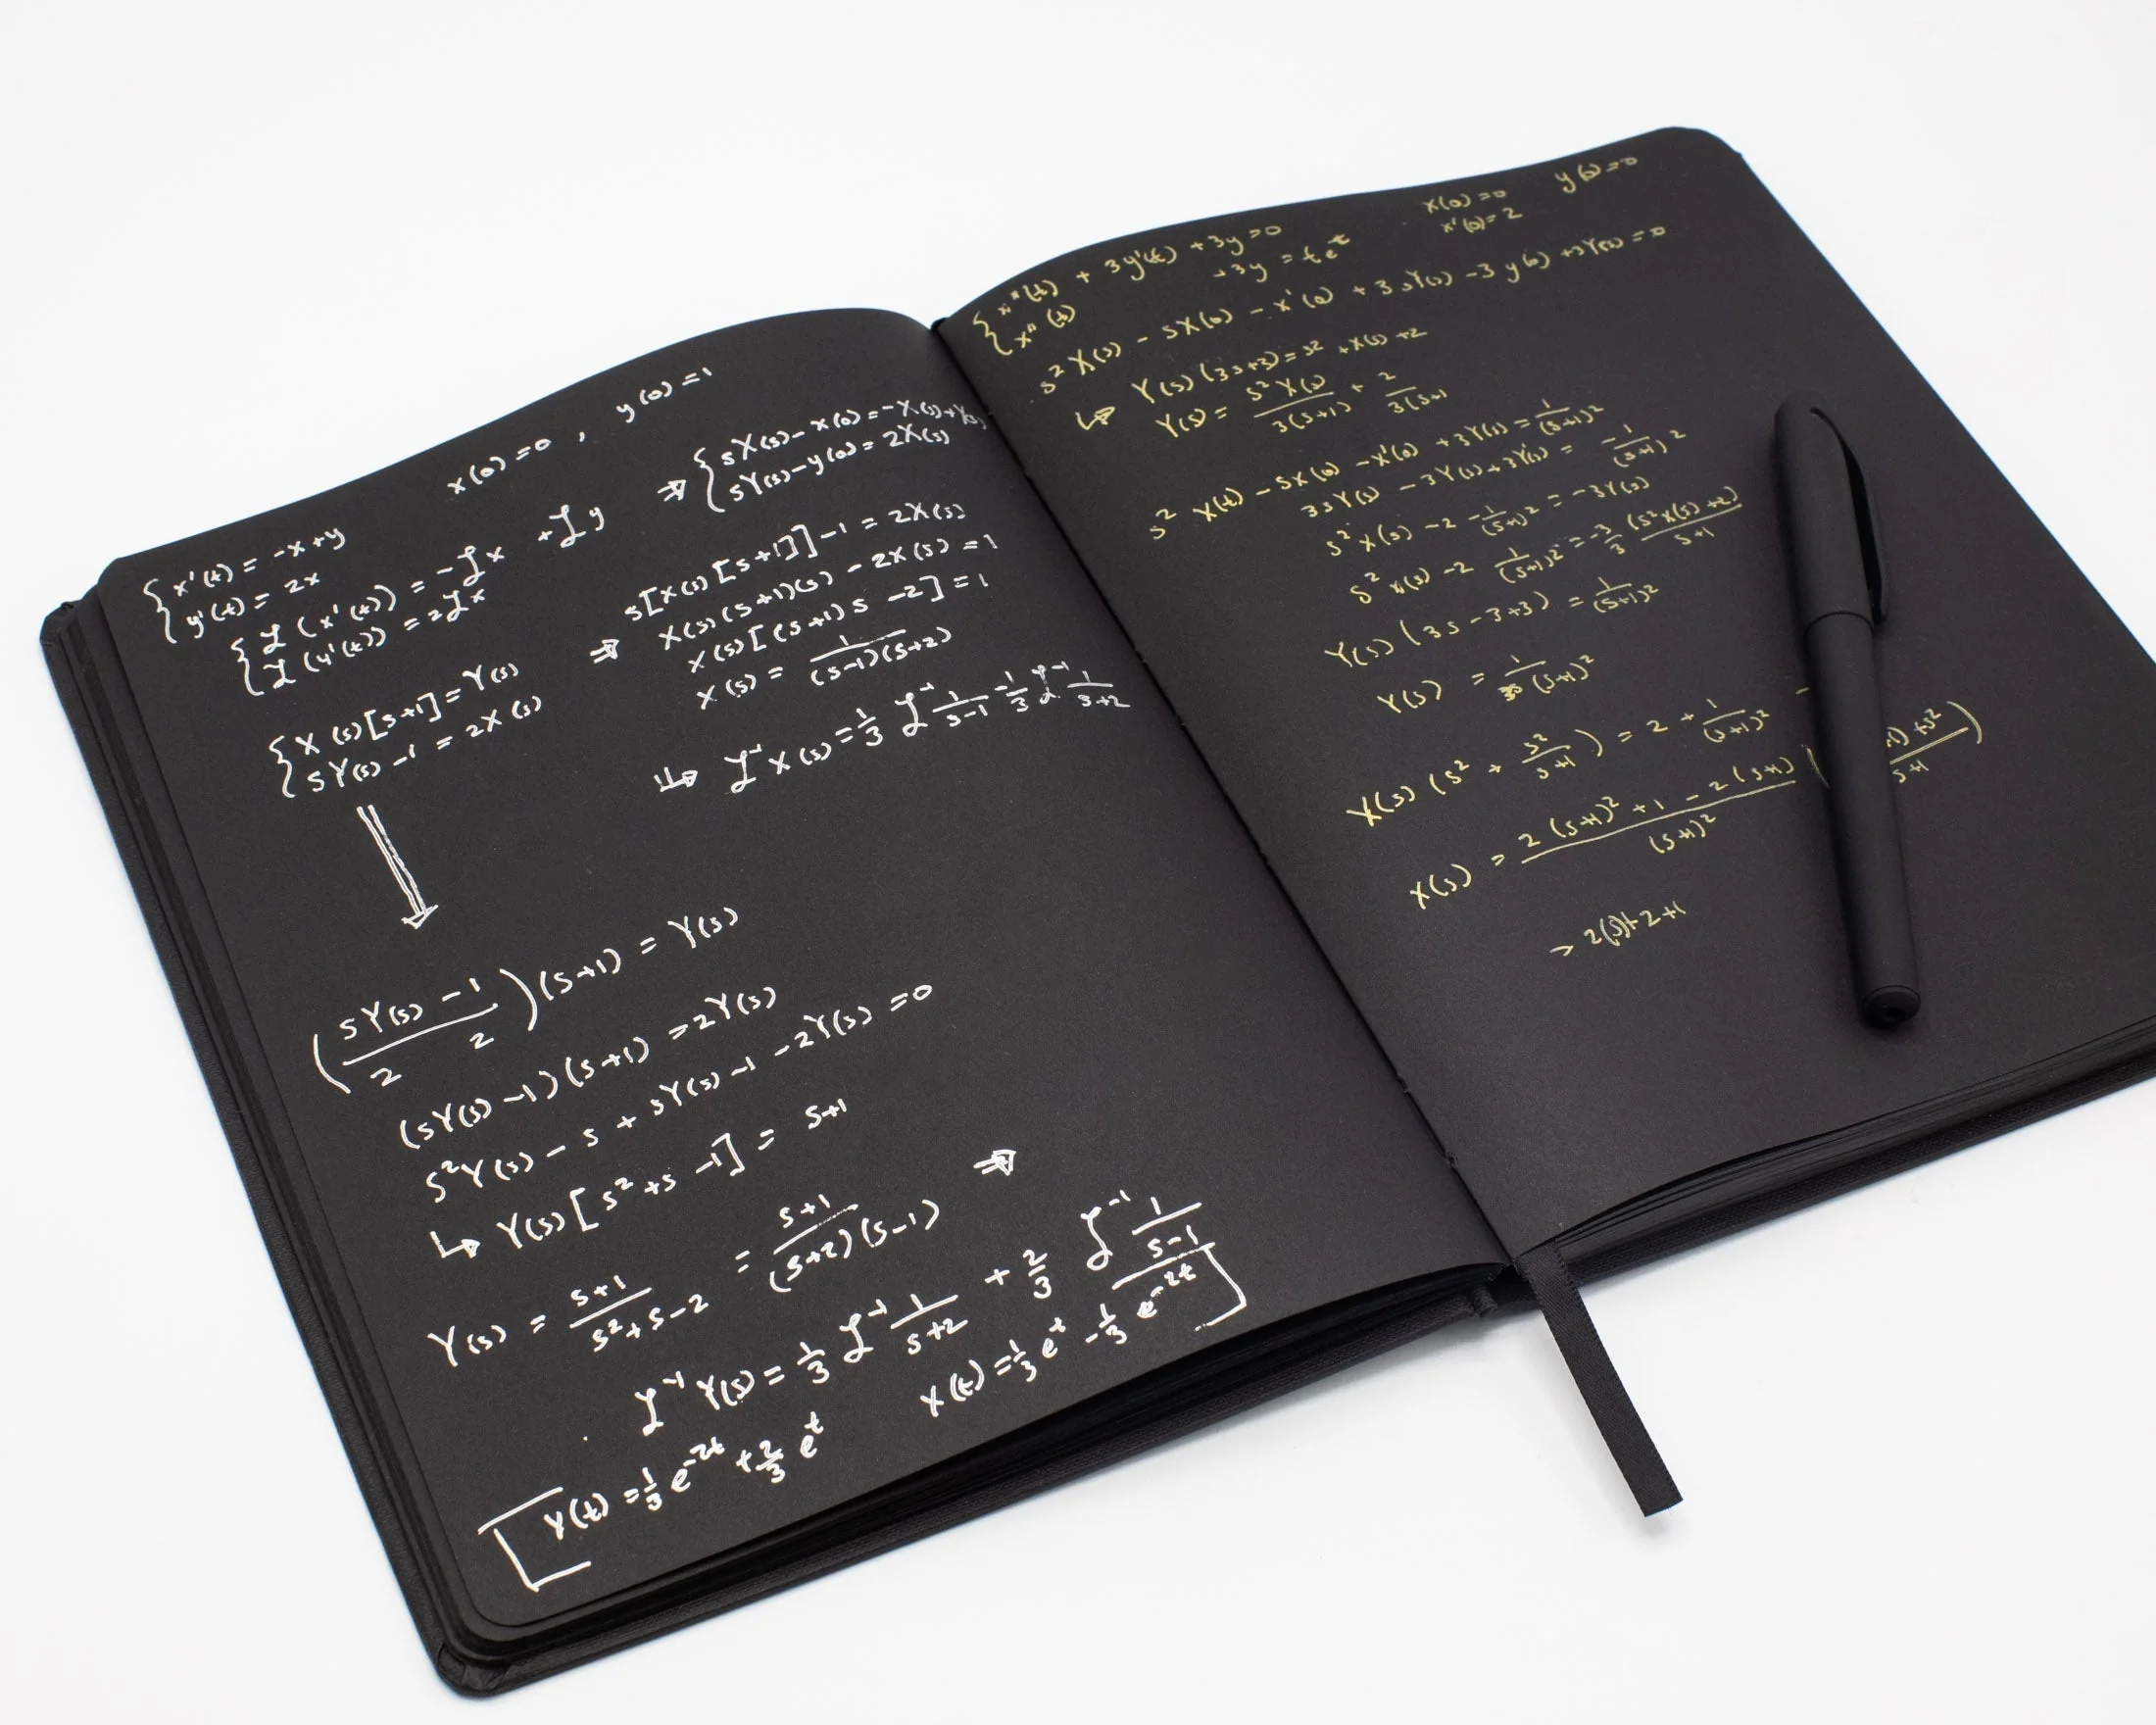 x(0)=0 , y(0)=1
{ x'(t) = -x+y
y'(t) = 2x
{ ℒ(x'(t)) = -ℒx +ℒy
ℒ(y'(t)) = 2ℒx
⇒ { sX(s)-x(0)=-X(s)+Y(s)
sY(s)-y(0)=2X(s)
{ X(s)[s+1]=Y(s)
sY(s)-1 = 2X(s)
⇒ s[X(s)[s+1]]-1 = 2X(s)
X(s)(s+1)(s) - 2X(s) = 1
X(s)[(s+1)s -2] = 1
X(s) = 1/((s-1)(s+2))
↳ ℒ⁻¹ X(s) = 1/3 ℒ⁻¹ 1/(s-1) - 1/3 ℒ⁻¹ 1/(s+2)
((sY(s) -1)/(2 2))(s+1) = Y(s)
(sY(s)-1)(s+1) = 2Y(s)
s²Y(s) - s + sY(s) -1 -2Y(s) = 0
↳ Y(s)[s²+s -1] = s+1
Y(s) = (s+1)/(s²+s-2) = (s+1)/((s+2)(s-1)) ⇒
ℒ⁻¹ Y(s) = 1/3 ℒ⁻¹ 1/(s+2) + 2/3 ℒ⁻¹ 1/(s-1)
Y(t) = 1/3 e^-2t + 2/3 e^t
X(t) = 1/3 e^t - 1/3 e^-2t
x(0)=0 y(0)=0
x'(0)=2
{ x''(t) + 3y'(t) +3y =0
x''(t) +3y = te^t
s²X(s) - sX(0) - x'(0) + 3sY(s) -3y(0) +3Y(s) =0
↳ Y(s)(3s+3) = s² +X(s) +2
Y(s) = s²X(s)/(3(s+1)) + 2/(3(s+1
s² X(t) - sX(0) -x'(0) +3Y(s) = 1/(s+1)²
3sY(s) -3Y(s)+3Y(s) = -1/(s+1)²
s²X(s) -2 -1/(s+1)² = -3Y(s)
s²X(s) -2 1/(s+1)² = -3/3 (s²X(s)+2)/(s+1)
Y(s)(3s-3+3) = 1/(s+1)²
Y(s) = 1/(3s(s+1)²
X(s)(s² + s²/(s+1)) = 2 + 1/(s+1)² -
X(s) = (2(s+1)²+1-2(s+1))/(s+1)² ( +s²)/(s+1) )
→ 2(s)+2+1